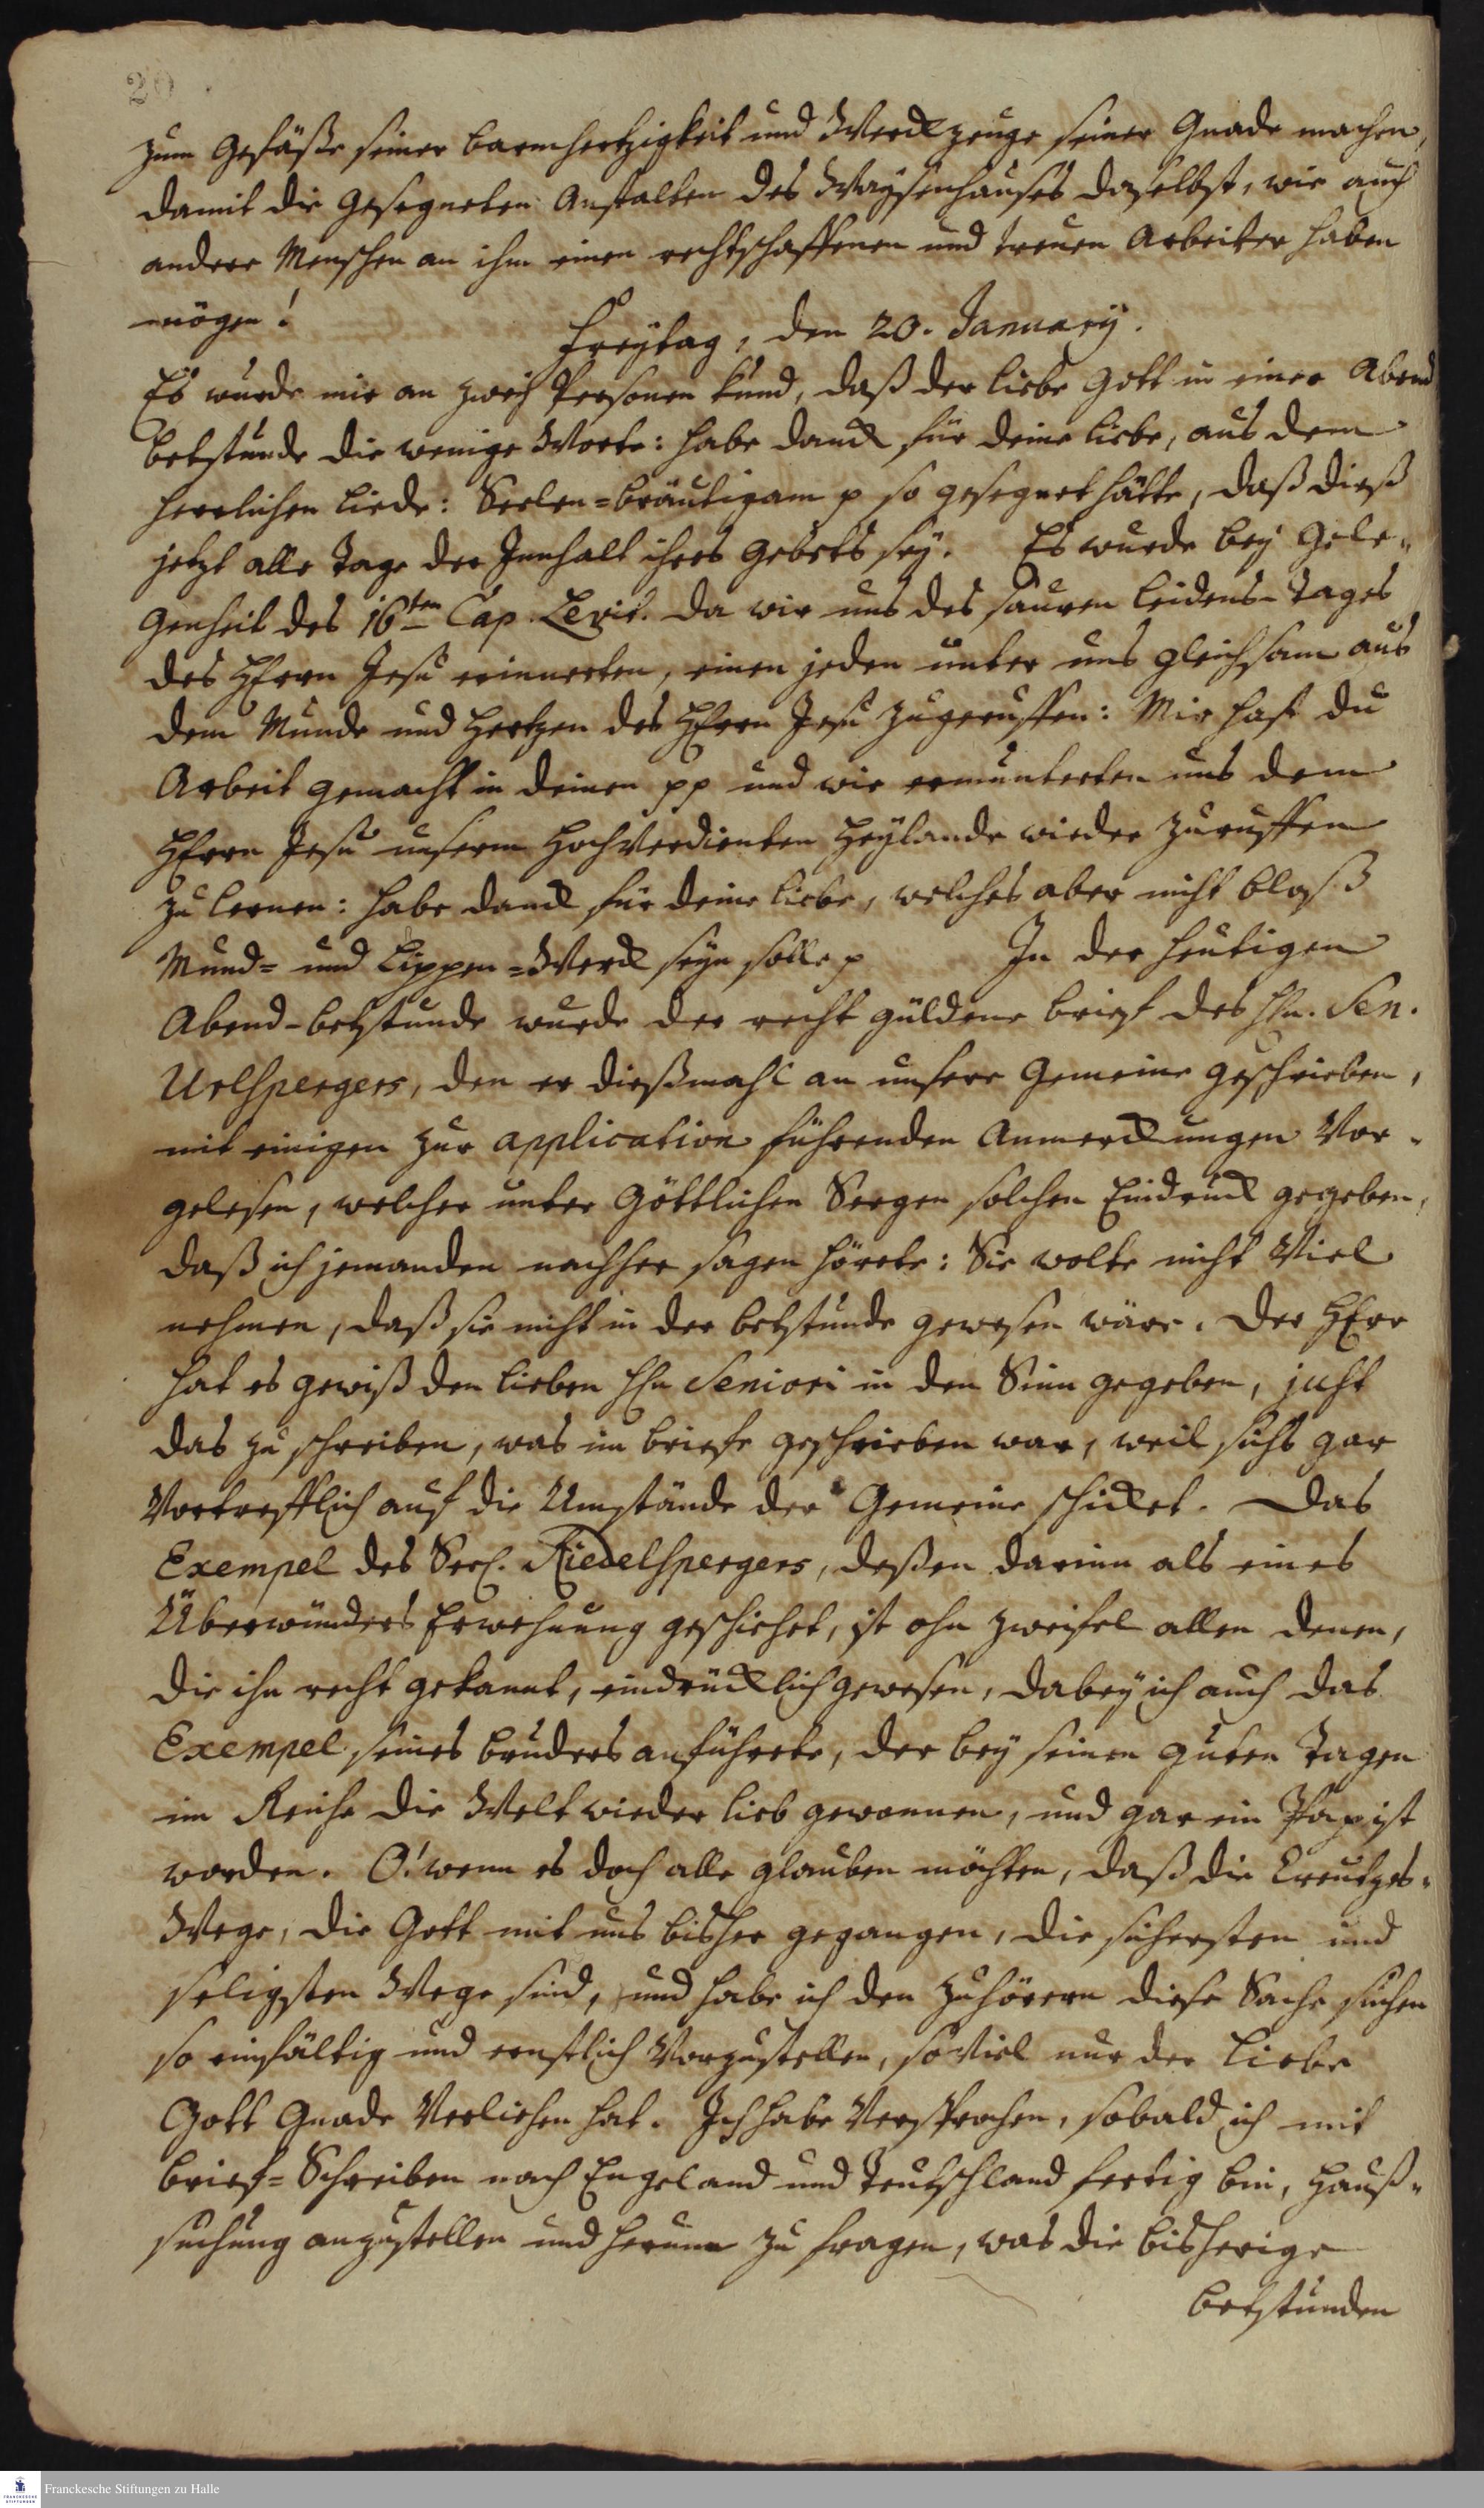 20
zum Gefäße seiner barmhertzigkeit und Werckzeuge seiner Gnade machen,
damit die gesegneten Anstalten des Waysenhauses daselbst, wie auch
andere Menschen an ihm einen rechtschaffenen und treuen Arbeiter haben
mögen!
Freytag, den 20. January.
Es wurde mir an zwey Personen kund, daß der liebe Gott in einer Abend
betstunde die wenige Worte: habe danck für deine liebe, aus dem
herrlichen liede: Seelen=bräutigam p so gesegnet hätte, daß dieß
jetzt alle Tage der Innhalt ihres Gebets sey. Es wurde bey Gele=
genheit des 16ten Cap. Levit. da wir uns des sauren leidens-Tages
des HErrn Jesu erinnerten, einen jeden unter uns gleichsam aus
dem Munde und Hertzen des HErrn Jesu zugeruffen: Mir hast du
Arbeit gemacht in deinen pp und wir ermunterten uns dem
HErrn Jesu unserm Hochverdienten Heylande wieder zuruffen
zu lernen: habe danck für deine liebe, welches aber nicht bloß
Mund= und Lippen=Werck seyn solle p In der heutigen
Abend-betstunde wurde der recht güldene brief des Hn. Sen.
Urlspergers, den er dießmahl an unsere Gemeine geschrieben,
mit einigen zur application führenden Anmerckungen Vor=
gelesen, welcher unter Göttlichen Seegen solchen Eindruck gegeben,
daß ich jemanden nachher sagen hörete: Sie wolte nicht Viel
nehmen, daß sie nicht in der betstunde gewesen wäre. Der HErr
hat es gewiß den lieben Hn Seniori in den Sinn gegeben, just
das zu schreiben, was im briefe geschrieben war, weil sichs gar
Vortrefflich auf die Umstände der Gemeine schicket. Das
Exempel des Seel. Riedelspergers, deßen darinn als eines
Überwünders Erwehnung geschiehet, ist ohn zweifel allen denen,
die ihn recht gekannt, eindrücklich gewesen, dabey ich auch das
Exempel seines bruders anführete, der bey seinen guten Tagen
im Reiche die Welt wieder lieb gewonnen, und gar ein Papist
worden. O! wenn es doch alle glauben möchten, daß die Creutzes=
Wege, die Gott mit uns bisher gegangen, die sichersten und
seligsten Wege sind, und habe ich den Zuhörern diese Sache suchen
so einfältig und ernstlich Vorzustellen, so Viel nur der liebe
Gott Gnade Verliehen hat. Ich habe Versprochen, sobald ich mit
brief=Schreiben nach Engeland und Teutschland fertig bin, Hauß=
suchung anzustellen und herum zu fragen, was die bisherige
betstunden
Franckesche Stiftungen zu Halle
FRANCKESCHE
STIFTUNGEN